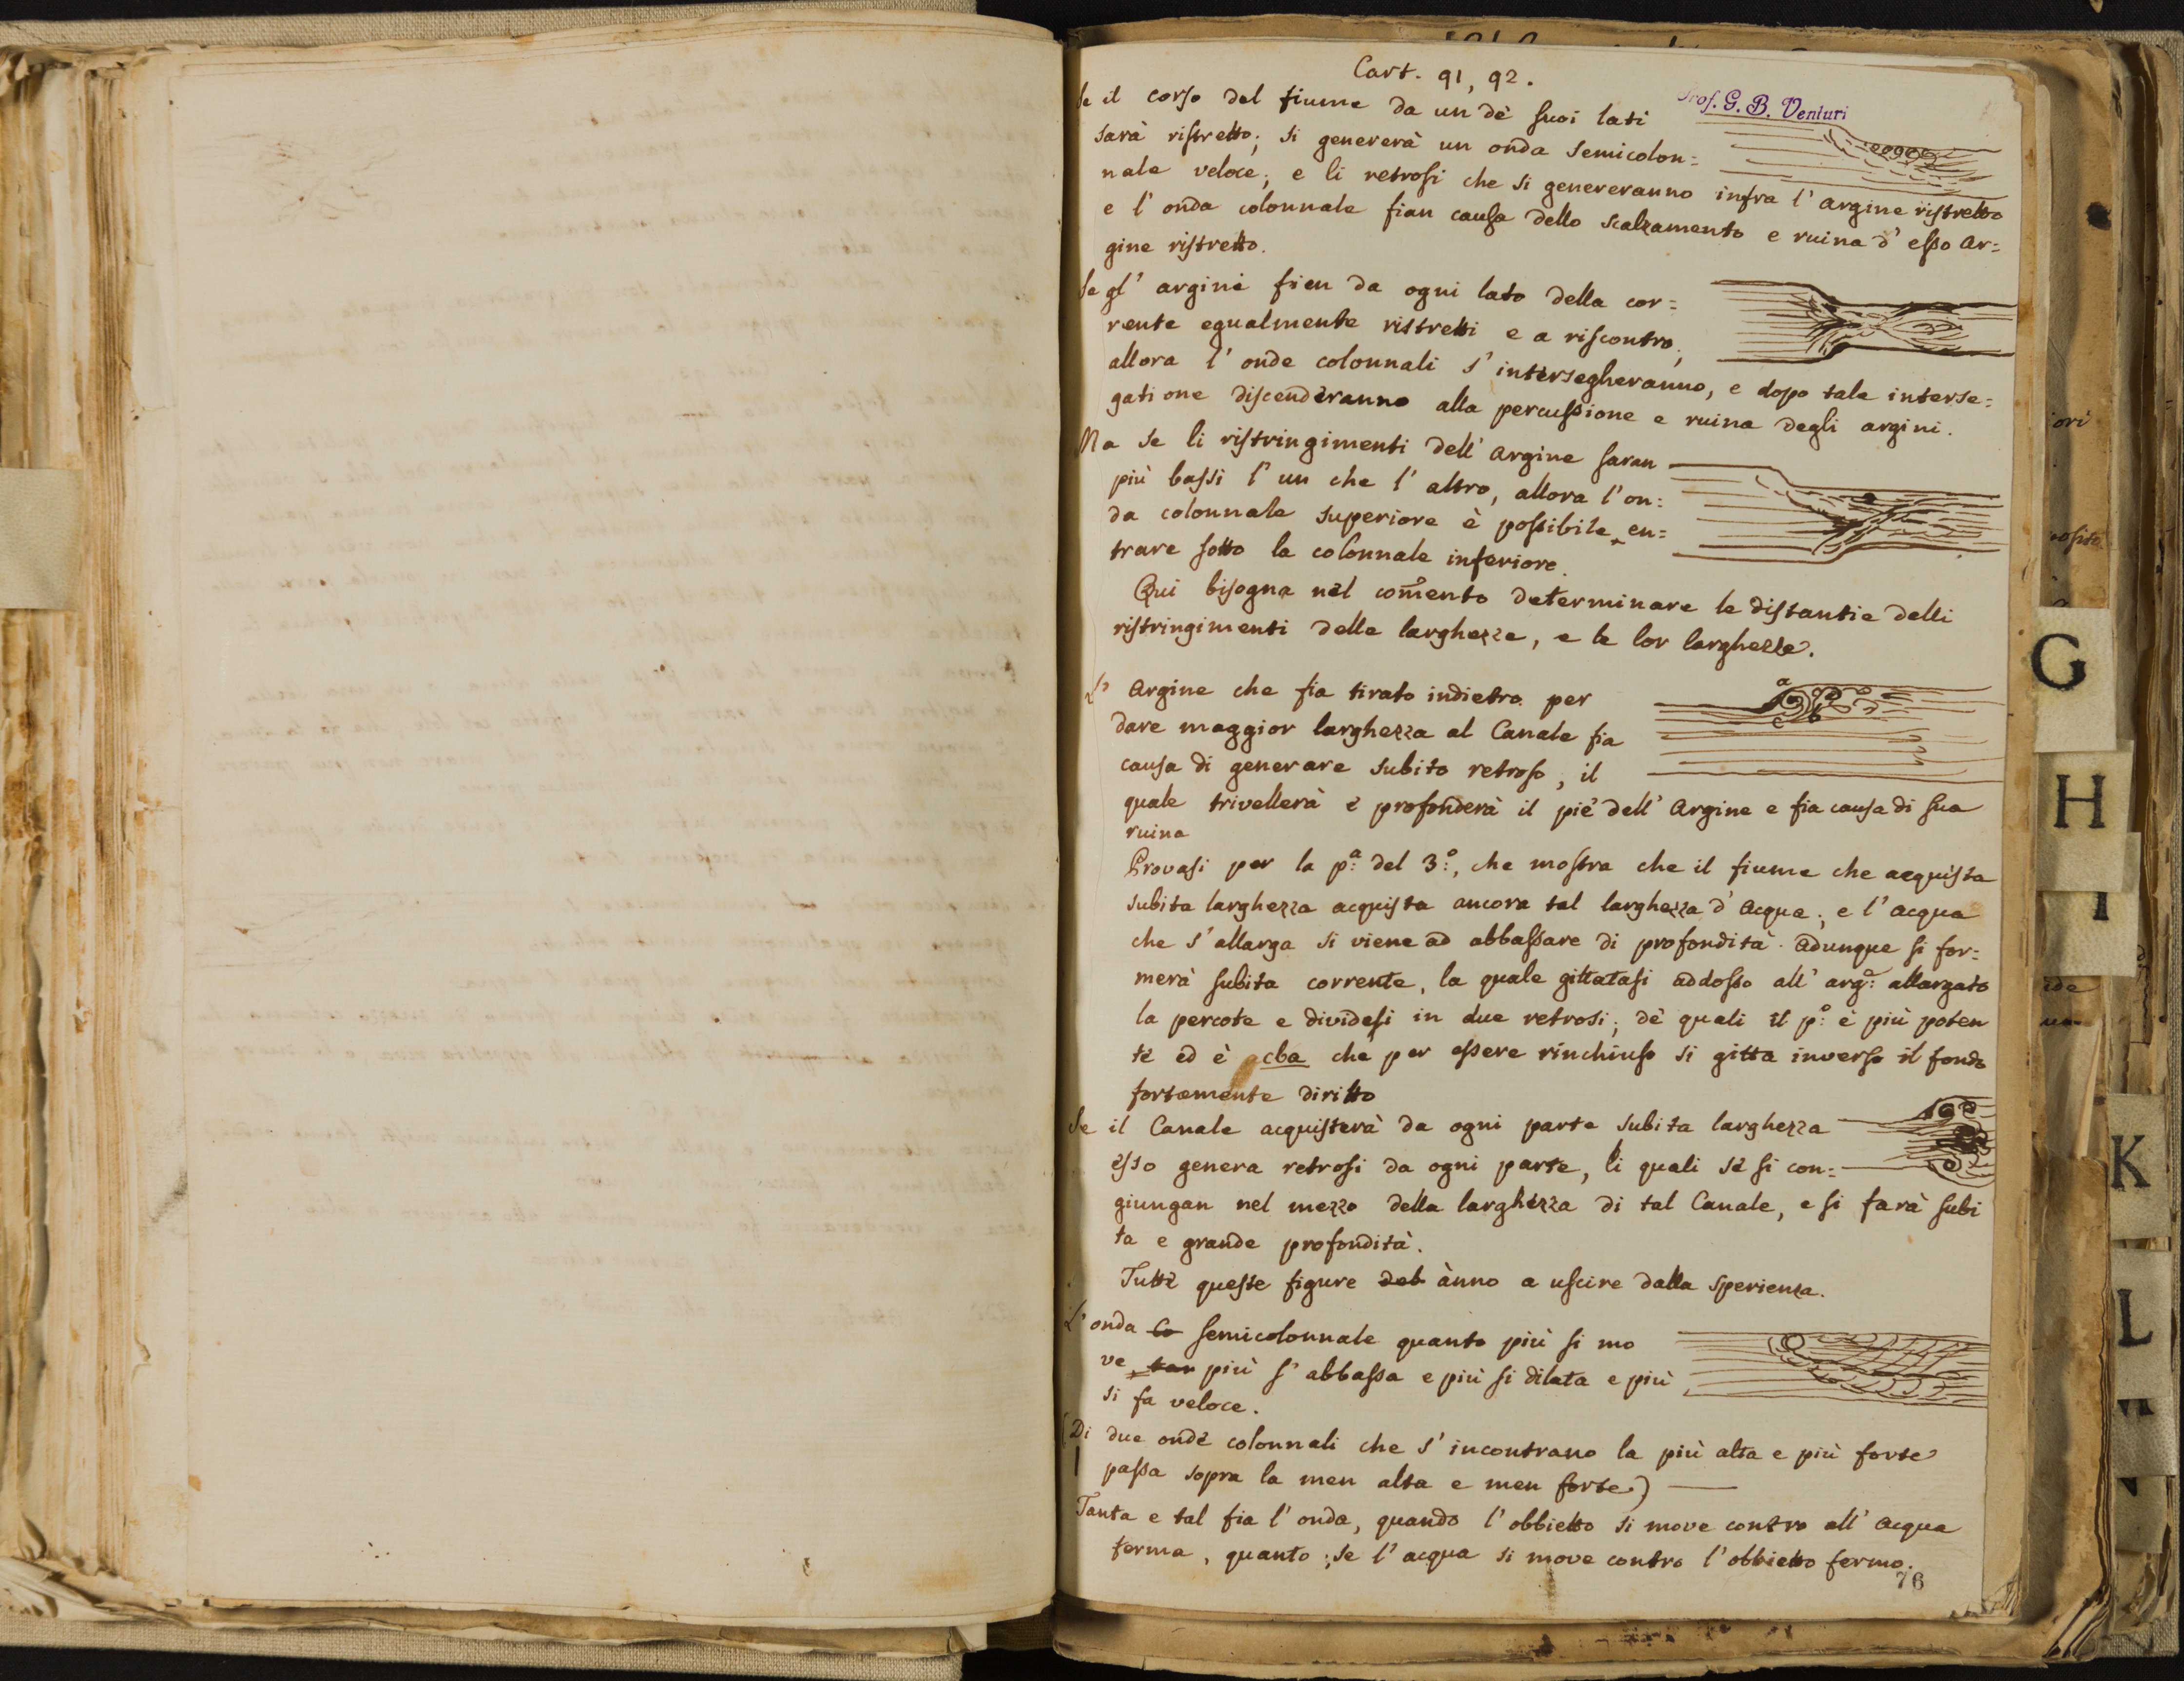 Cart. 91, 92.
Prof. G. B. Venturi
Se il corso del fiume da un de' suoi lati
sarà ristretto; si genererà un onda semicolon=
nale veloce; e li retrosi che si genereranno infra l' argine ristretto
e l' onda colonnale fian causa dello scalzamento e ruina d' esso ar=
gine ristretto.
Se gl' argini fien da ogni lato della cor=
rente egualmente ristretti e a riscontro;
allora l' onde colonnali s' intersegheranno, e dopo tale interse=
gatione discenderanno alla percussione e ruina degli argini.
Ma se li ristringimenti dell' argine saran
più bassi l' un che l' altro, allora l' on=
da colonnale superiore è possibile en=
trare sotto la colonnale inferiore.
Qui bisogna nel comento determinare le distantie delli
ristringimenti delle larghezze, e le lor larghezze.
L' Argine che fia tirato indietro per
dare maggior larghezza al Canale fia
causa di generare subito retroso, il
quale trivellerà e profonderà il piè dell' Argine e fia causa di sua
ruina
a
c b
Provasi per la p:ª del 3:º, che mostra che il fiume che acquista
subita larghezza acquista ancora tal larghezza d' acqua; e l' acqua
che s' allarga si viene ad abbassare di profondità. adunque si for=
merà subita corrente, la quale gittatasi addosso all' arg:ª allargato
la percote e dividesi in due retrosi; de' quali il p:º è più poten
te ed è cba che per essere rinchiuso si gitta inverso il fondo
fortemente diritto
Se il Canale acquisterà da ogni parte subita larghezza
esso genera retrosi da ogni parte, li quali se si con=
giungan nel mezzo della larghezza di tal Canale, e si farà subi
ta e grande profondità.
Tutte queste figure deb ànno a uscire dalla sperienza.
L' onda co semicolonnale quanto più si mo
ve tan più s' abbassa e più si dilata e più
si fa veloce.
(Di due onde colonnali che s' incontrano la più alta e più forte
passa sopra la men alta e men forte)
Tanta e tal fia l' onda, quando l' obbietto si move contro all' acqua
ferma, quanto se l' acqua si move contro l' obbietto fermo.
76
G
H
I
K
L